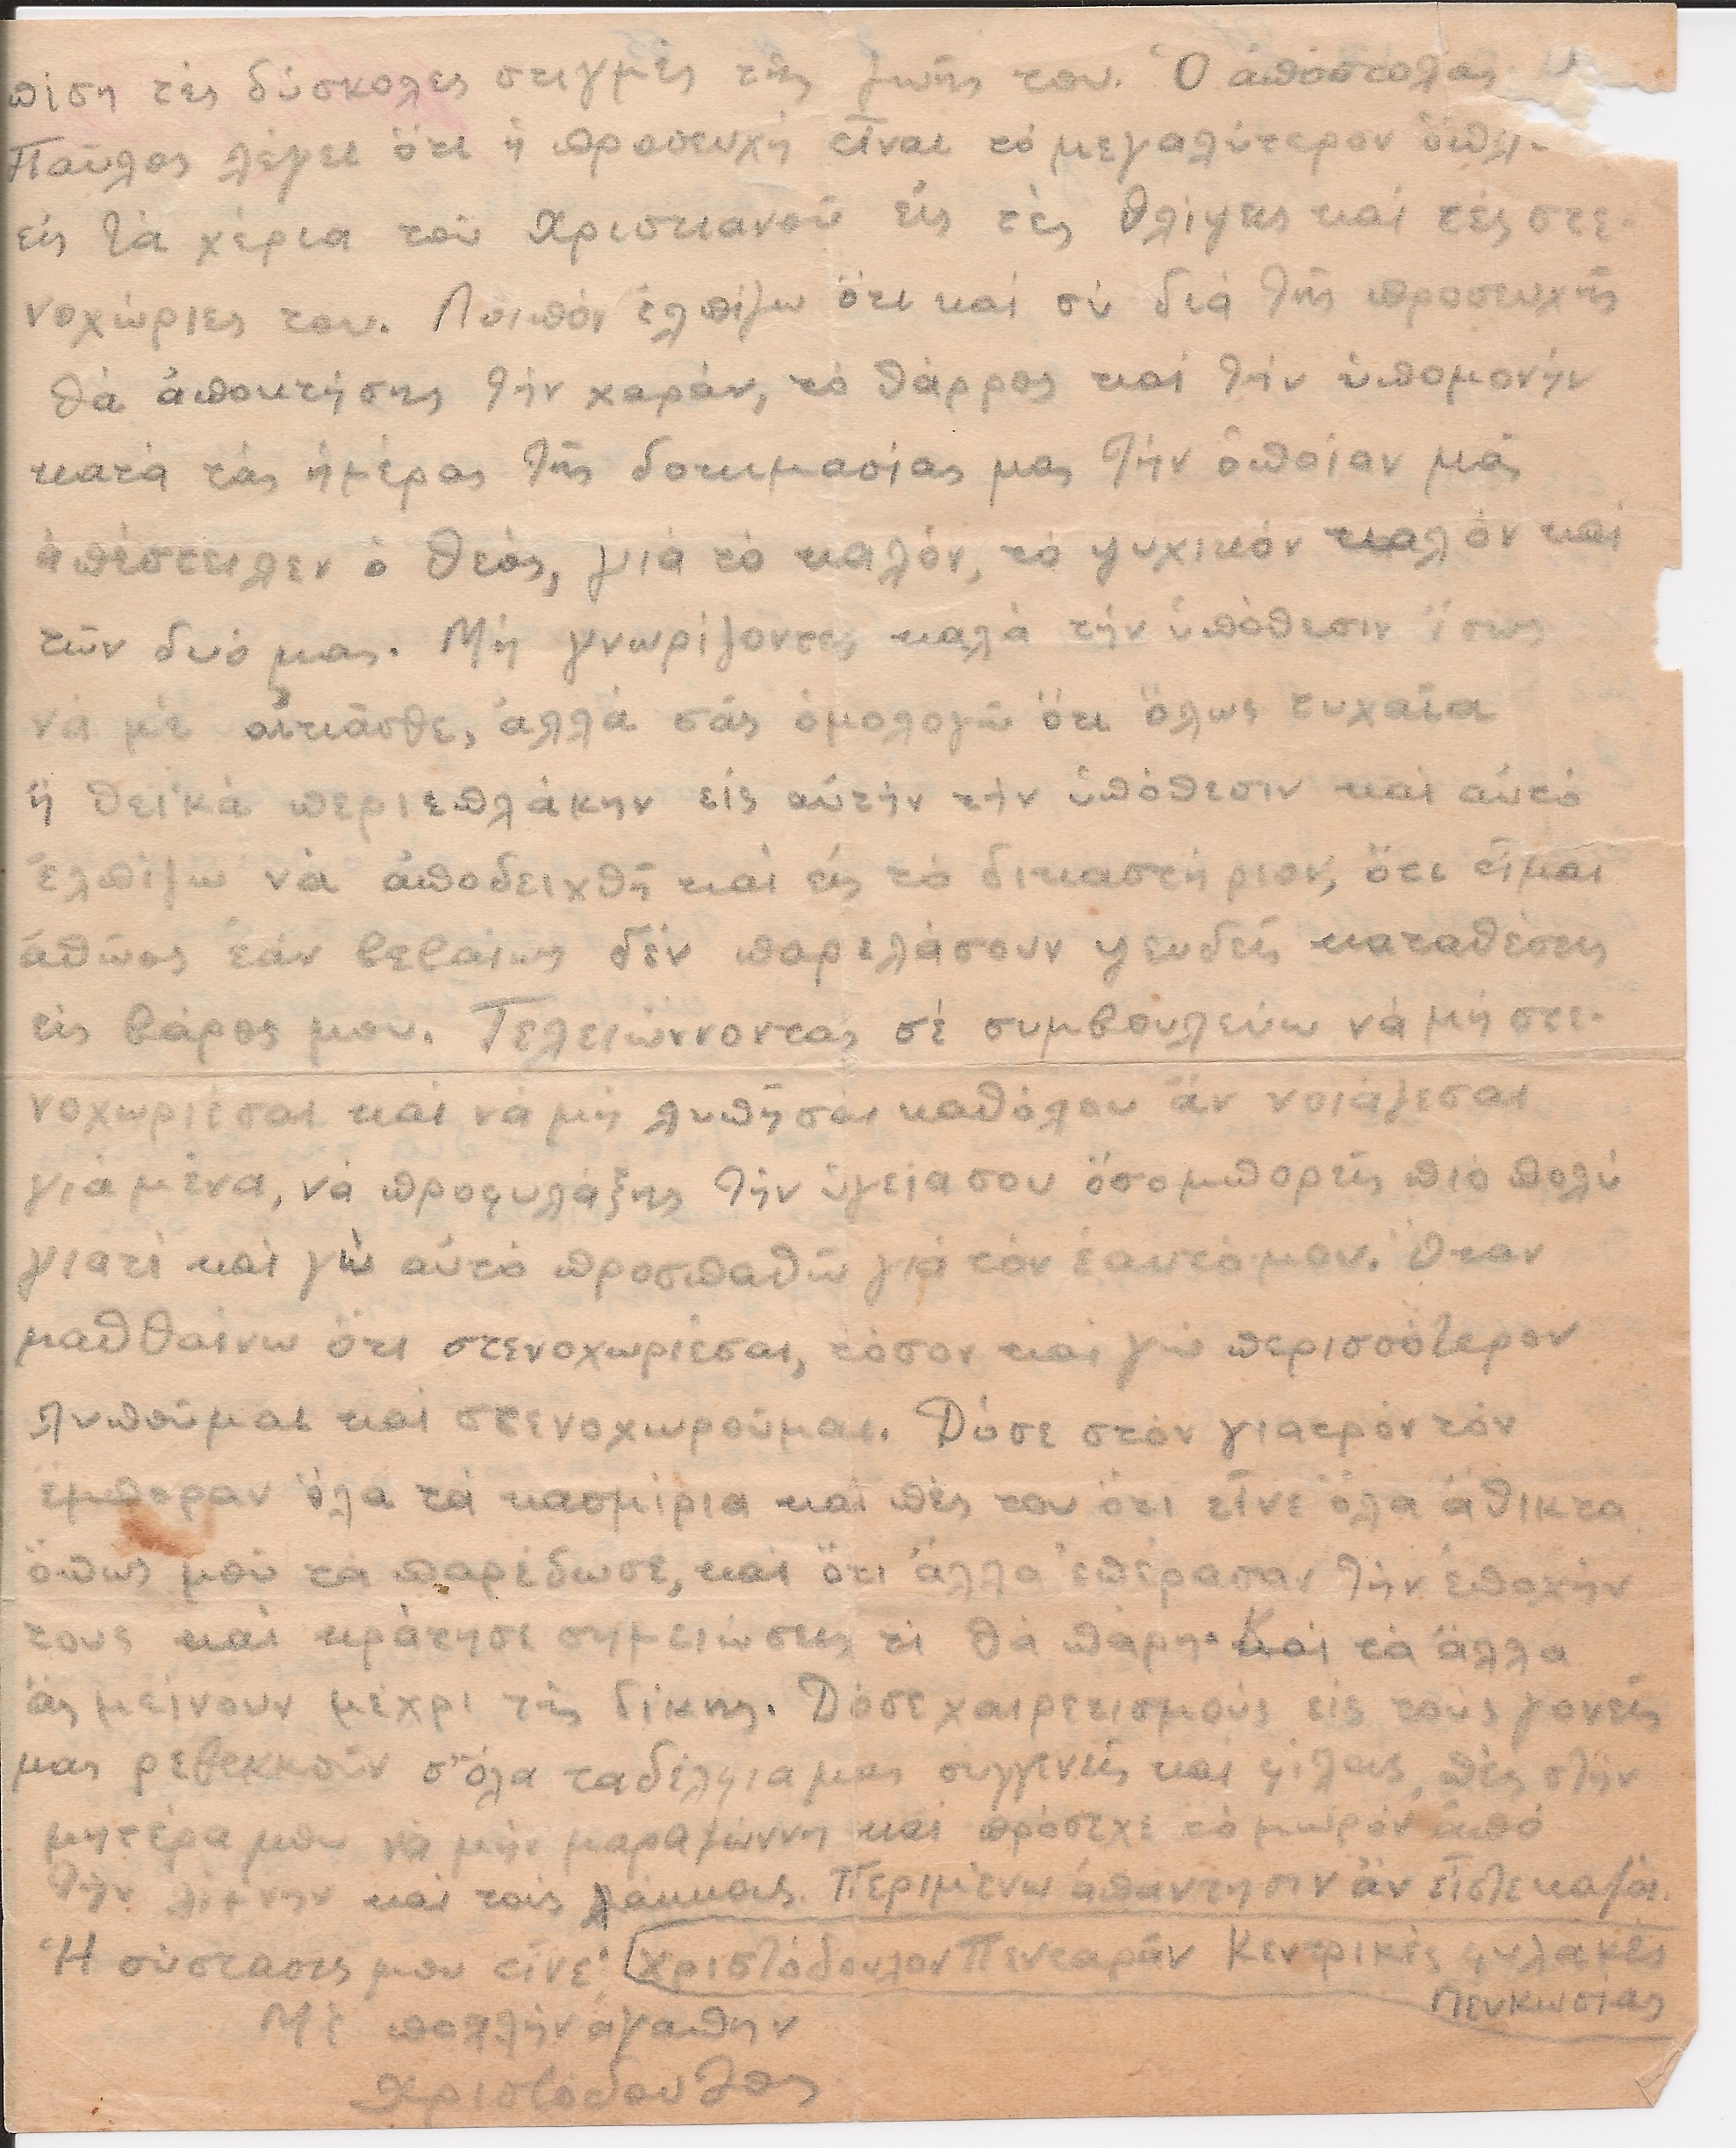 πίση τές δύσκολες στιγμές τῆς ζωῆς του. Ὁ ἀπόστολος
Παῦλος λέγει ὅτι ἡ προσευχή εἶναι τό μεγαλύτερον ὅπλ-
εἰς τά χέρια τοῦ Χριστιανοῦ εἰς τές θλίψεις καί τές στε-
νοχώριες του. Λοιπόν ἐλπίζω ὅτι καί σύ διά τῆς προσευχῆς
θά ἀποκτήσης τήν χαράν, τό θάρρος καί τήν ὑπομονήν
κατά τάς ἡμέρας τῆς δοκιμασίας μας τήν ὁποίαν μᾶς
ἀπέστειλεν ὁ Θεός, γιά τό καλόν, τό ψυχικόν καλόν καί
τῶν δυό μας. Μή γνωρίζοντες καλά τήν ὑπόθεσιν ἴσως
νά μέ αἰτιᾶσθε, ἀλλά σᾶς ὁμολογῶ ὅτι ὅλως τυχαῖα
ἤ θεϊκά περιεπλάκην εἰς αὐτήν τήν ὑπόθεσιν καί αὐτό
ἐλπίζω νά ἀποδειχθῆ καί εἰς τό δικαστήριον, ὅτι εἶμαι
ἀθῶος ἐάν βεβαίως δέν παρελάσουν ψευδεῖς καταθέσεις
εἰς βάρος μου. Τελειώννοντας σέ συμβουλεύω νά μή στε-
νοχωριέσαι καί νά μή λυπῆσαι καθόλου ἄν νοιάζεσαι
γιά μένα, νά προφυλάξης τήν ὑγεία σου ὅσο μπορεῖς πιό πολύ
γιατί καί γώ αὐτό προσπαθῶ γιά τόν ἑαυτό μου. Ὅταν
μαθθαίνω ὅτι στενοχωριέσαι, τόσον καί γώ περισσότερον
λυποῦμαι καί στενοχωροῦμαι. Δόσε στόν γιατρόν τόν
ἔμποραν ὅλα τά κασμίρια καί πές του ὅτι εἶνε ὅλα ἄθικτα
ὅπως μοῦ τά παρέδωσε, καί ὅτι ἄλλα ἐπέρασαν τήν ἐποχήν
τους καί κράτησε σημειώσεις τί θά πάρη. Καί τά ἄλλα
ἄς μείνουν μέχρι τῆς δίκης. Δόσε χαιρετισμούς εἰς τούς γονεῖς
μας ρεβεκκοῦν σ' ὅλα ταδέλφια μας συγγενεῖς καί φίλους, πές στήν
μητέρα μου νά μήν μαραζώννη καί πρόσεχε τό μωρόν ἀπό
τήν λίμνην καί τούς λάκκους. Περιμένω ἀπάντησιν ἄν εἶστε καλά.
Ἡ σύστασις μου εἶνε: Χριστόδουλον Πενταρᾶν Κεντρικές φυλακές
Λευκωσίας
Μέ πολλήν ἀγάπην
Χριστόδουλος